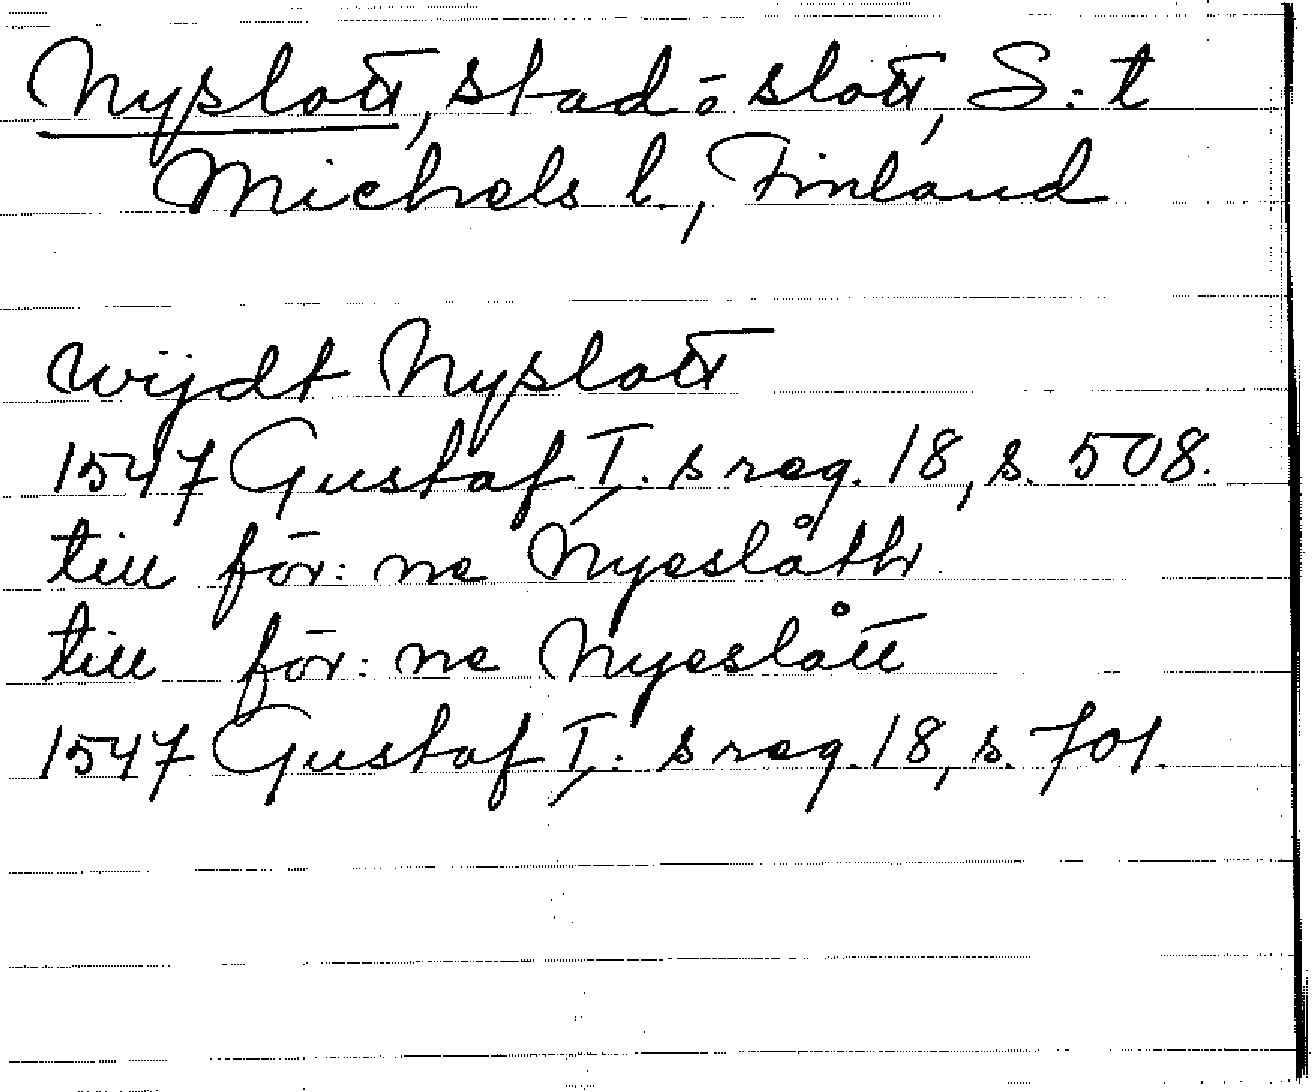 Nyslott, stad o slott, S:t
Michels l., Finland
wijdt Nyslott
1547 Gustaf I:s reg. 18, s. 508.
till för:ne Nyeslåth
till för:ne Nyeslått
1547 Gustaf I:s reg. 18, s. 701.